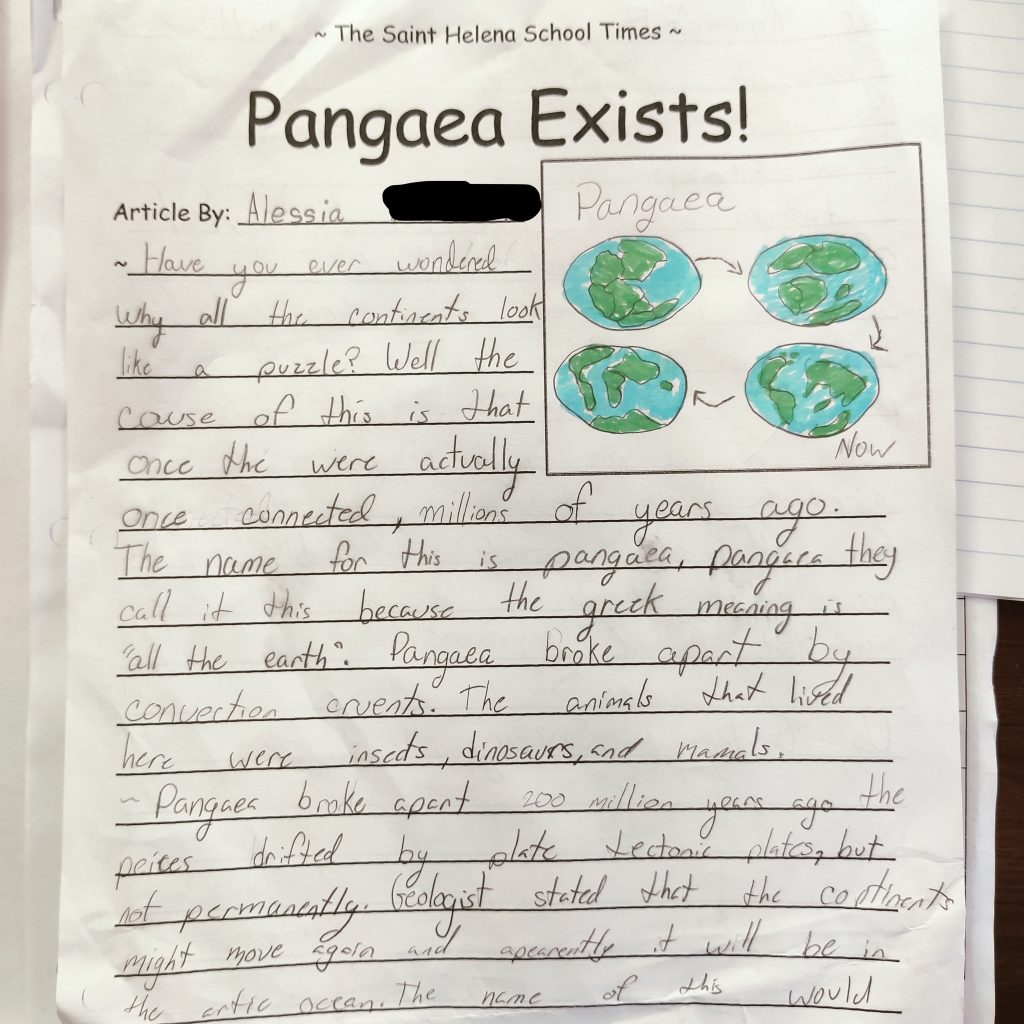 ~ The Saint Helena School Times ~
Pangaea Exists!
Pangaea
Article By: Alessia
~ Have you ever wondered
why all the continents look
like a puzzle? Well the
cause of this is that
once the were actually
Now
once connected, millions of years ago.
The name for this is pangaea, pangaea they
call it this because the greek meaning is
"all the earth". Pangaea broke apart by
convection cruents. The animals that lived
here were insects, dinosaurs, and mamals.
~ Pangaea broke apart 200 million years ago the
peices drifted by plate tectonic plates, but
not permanently. Geologist stated that the continents
might move again and apearently it will be in
the artic ocean. The name of this would